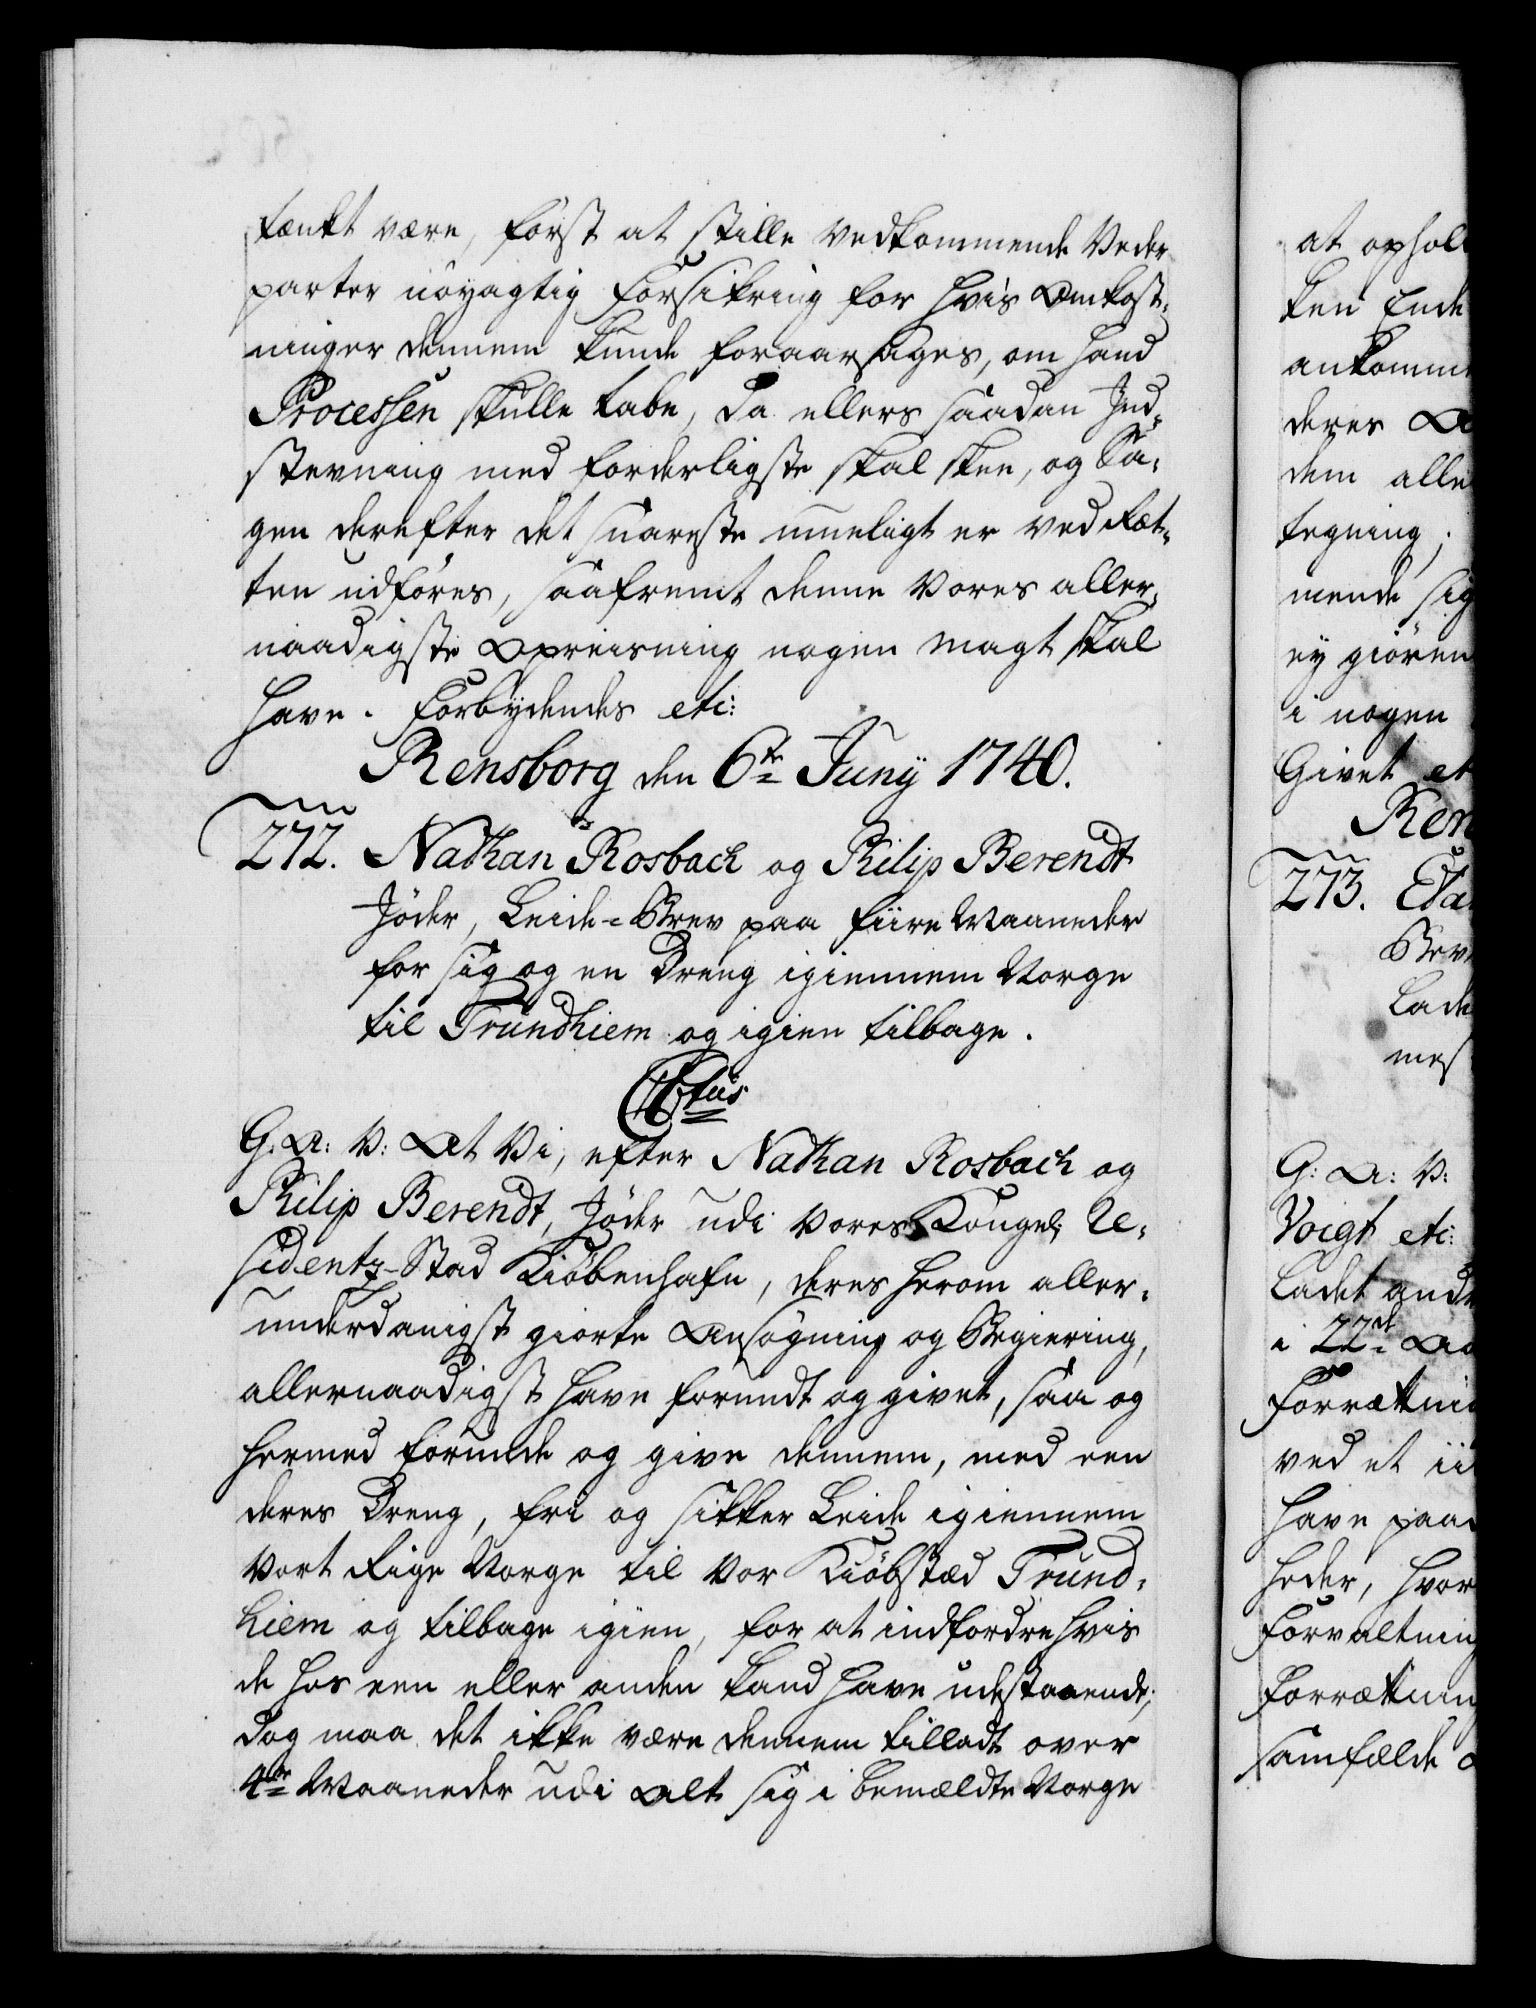 tænkt være, först at stille vedkommende Veder
parter nöyagtig Forsikring for hvis Omkost-
ninger dennem kunde foraarsages, om hand
Processen skulle tabe, da ellers saadan Ind-
stevning med forderligste skal skee, og Sa-
gen derefter det snareste mueligt er ved Ræt-
ten udföres, saafremt denne Vores aller-
naadigste Opreisning nogen Magt skal
have. Forbydendes etc:
Rensborg den 6te Juny 1740.
272. Nathan Rosbach og Philip Berendt
Jöder, Leide-Brev paa fiire Maaneder
for sig og en Dreng igiennem Norge
til Trundhiem og igien tilbage.
G: A: V: At Vi, efter Nathan Rosbach og
Philip Berendt, Jöder udi Vores Kongel: Re-
sidentz-Stad Kiöbenhafn, deres herom aller-
underdanigst giorte Ansögning og Begiering,
allernaadigst have forundt og givet, saa og
hermed forunde og give dennem, med een
deres Dreng, fri og sikker Leide igiennem
Vort Rige Norge til Vor Kiöbstæd Trund-
hiem og tilbage igien, for at indfordre hvis
de hos een eller anden kand have udestaaende;
Dog maa det ikke være dennem tilladt over
4re Maaneder udi alt sig i bemældte Norge
at ophol
ken Ende
ankomm
deres
dem alle
tegning;
mende sig
ey giören
i nogen
Givet et
Ren
273. Eta
Bev
Lade
mes
G: A: V:
Voigt etc:
Ladet and
i 22de Aa
Forrætni
ved et ii
have paa
heder, hvor
Forvaltnin
Forrætnin
samfælde